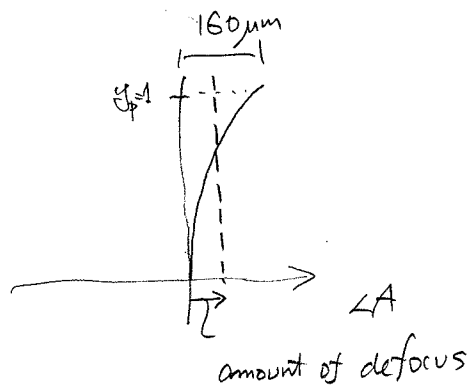 160μm
y_p=1
LA
amount of defocus